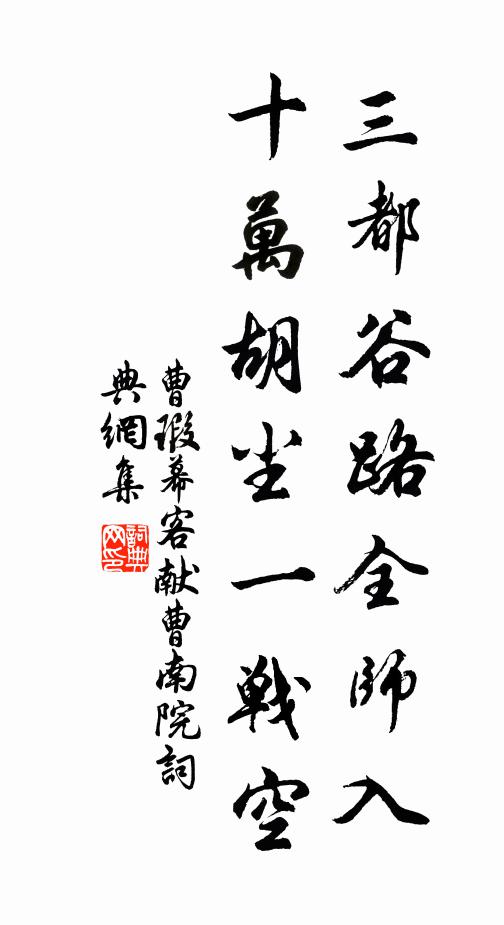 三都谷路全師入
十萬胡尘一戰空
曹瑕幕客献曹南院詞
典網集
詞典网印